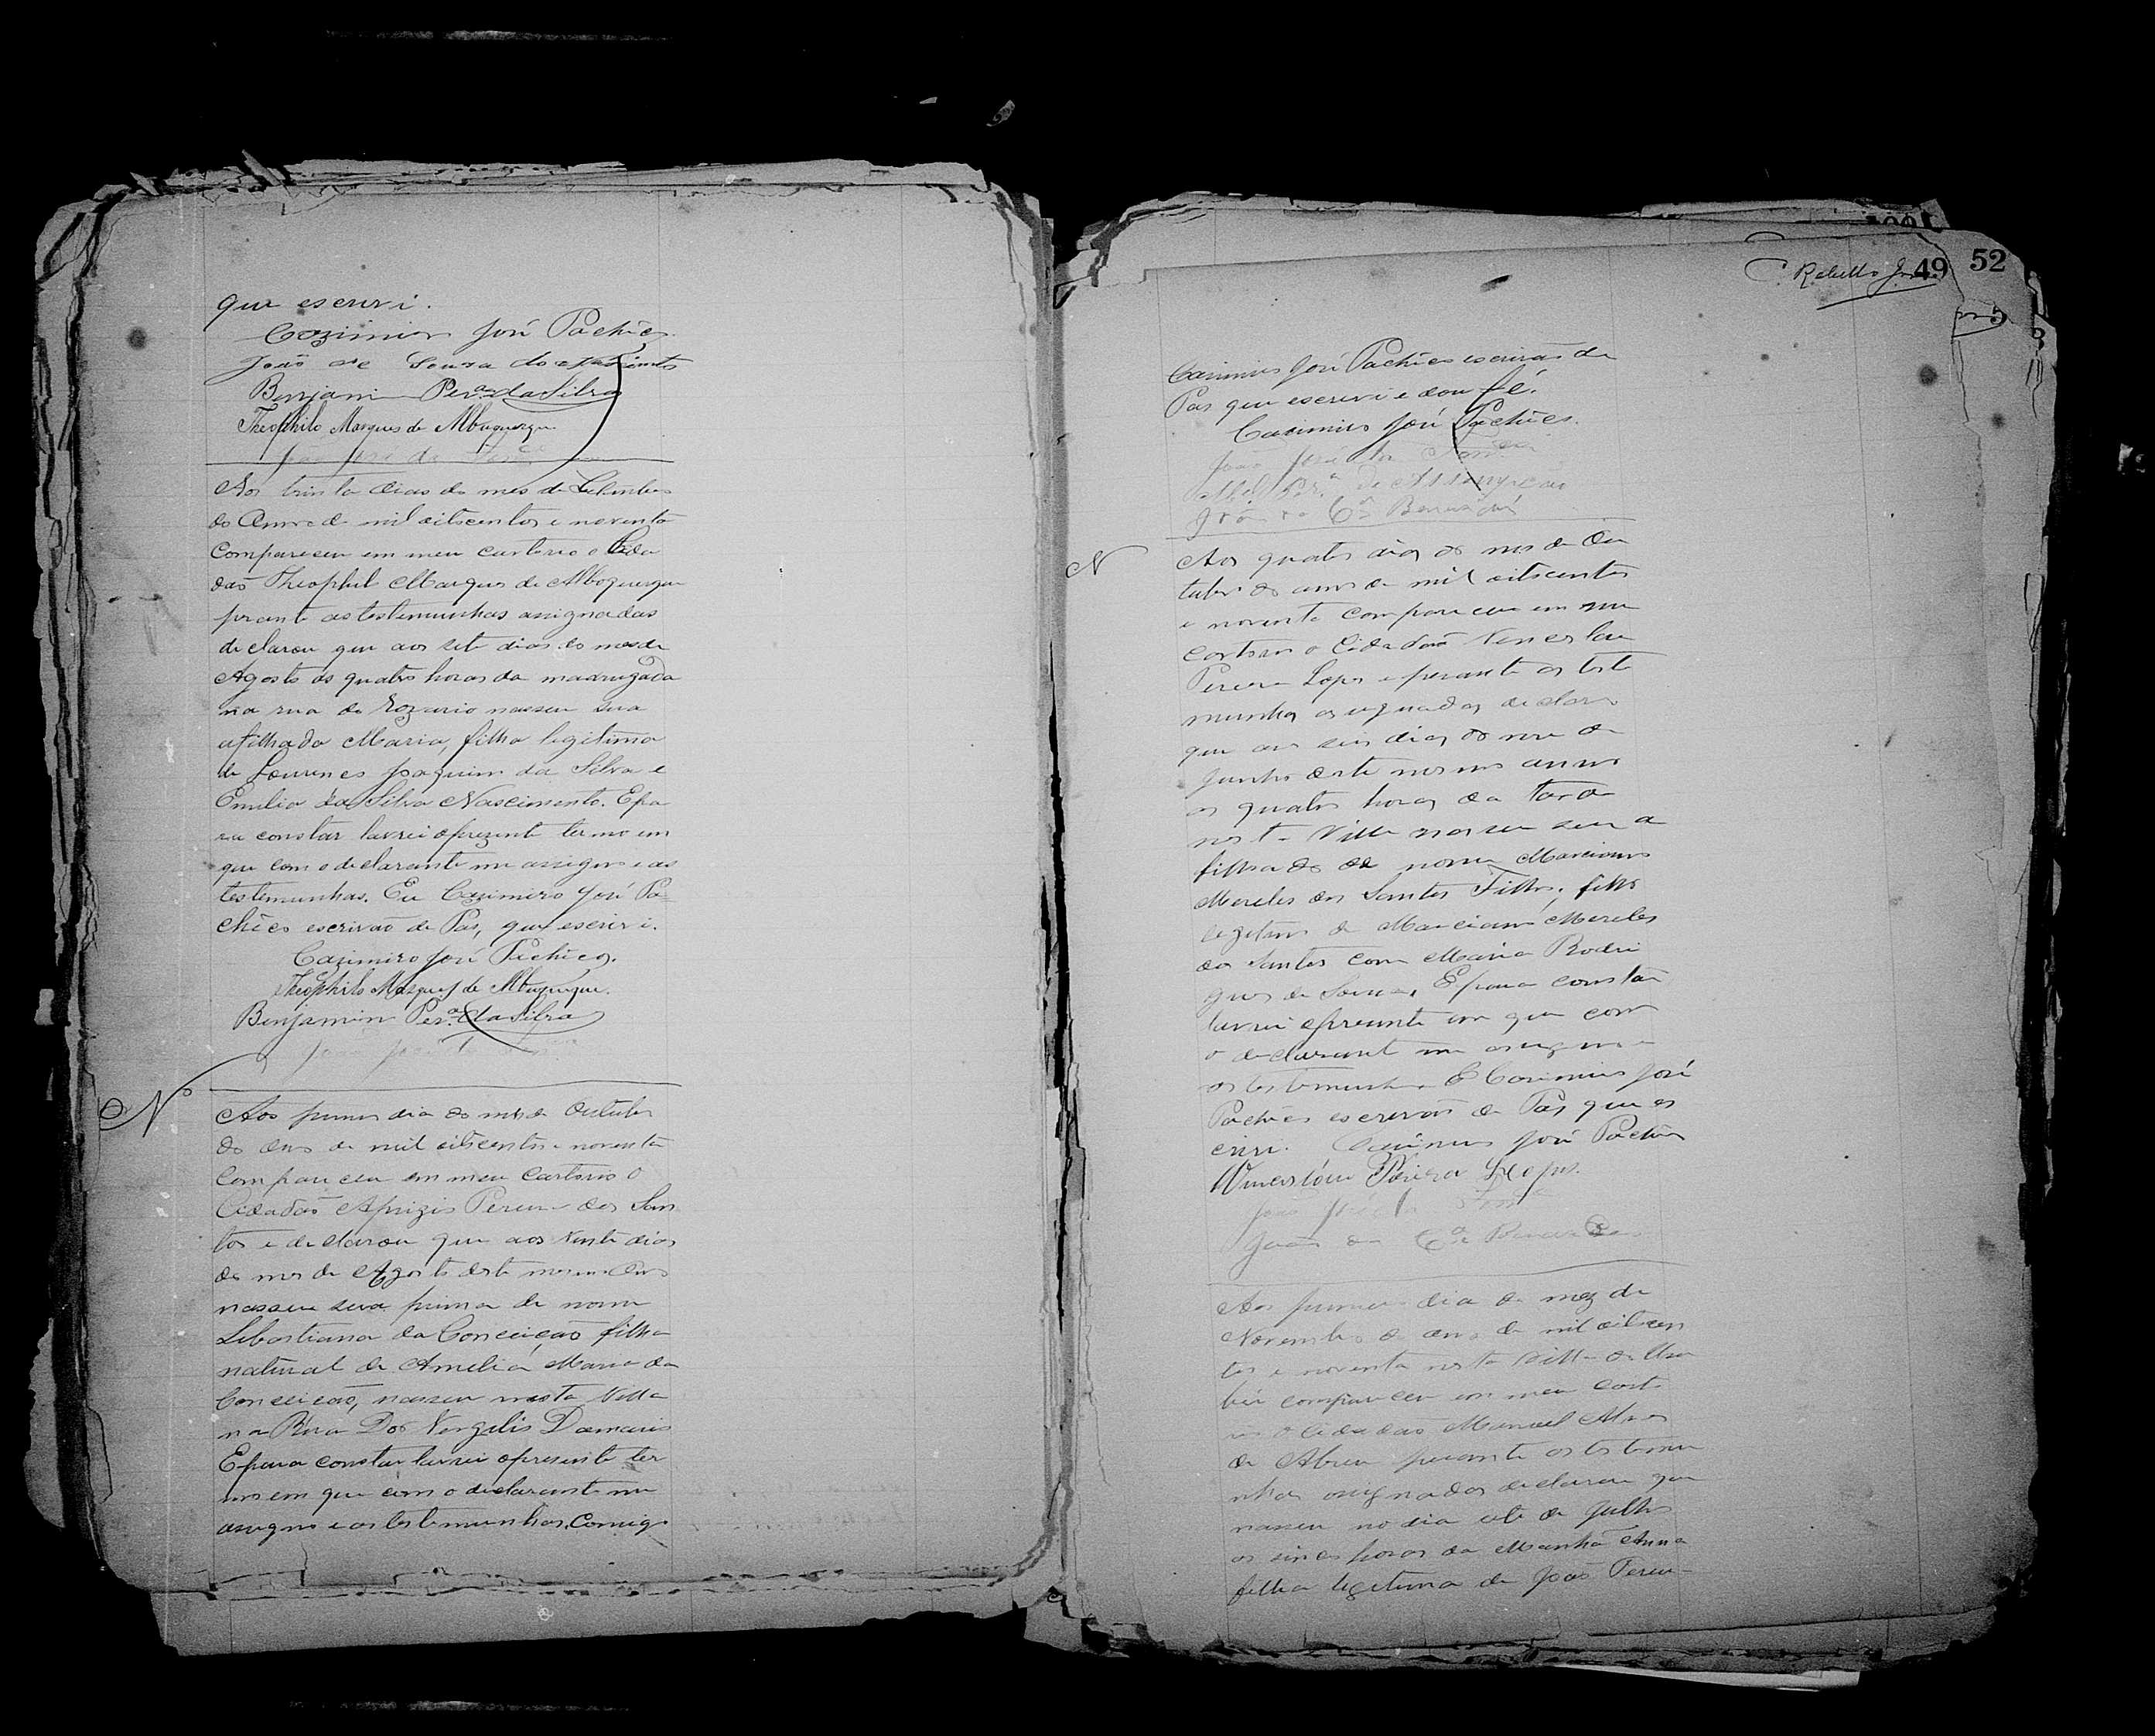 que escrevi.
Cazimiro José Pachêco
João de Souza do
Benjamin Per.ª da Silva
Theophilo Marques de Albuquerque
João José da
Aos trinta dias do mes de Setembro
do Anno de mil oitocentos e noventa
Compareceu em meu cartorio o Cida
dão Theophil Marques de Alboquerque
perante as testemunhas assignadas
declarou que aos sete dias do mes de
Agosto as quatro horas da madrugada
na rua do Rozario nasceu sua
afilhada Maria, filha legitima
de Lourenço Joaquim da Silva e
Emilia da Silva Nascimento. Epa
ra constar lavrei oprezente termo em
que com o declarante me assigno e as
testemunhas. Eu Cazimiro José Pa=
chêco escrivão de Pas, que escrevi.
Cazimiro José Pachêco.
Theophilo Marques de Albuquerque.
Benjamin Per.ª da Silva
João José da
N
Aos primeiro dia do mes de Outubro
do ano de mil oitocentos e noventa
Compareceu em meu Cartorio o
Cidadão Aprigio Pereira dos San
tos e declarou que aos vinte dias
do mes de Agosto deste mesmo Ano
nasceu sua prima de nome
Sebastiana da Conceição filha
natural de Amelia Maria da
Conceicão, nasceu nesta Villa
na Rua Dor Vergilio Damasio
Epara constar lavrei opresente ter
mo em que com o declarante me
assigno e as testemunhas, Comigo
C. Rabello Jr. 49 52
Casimiro José Pachêco escrivão de
Pas que escrevi e dou fé.
Casimiro José Pachêco.
João José da
Mel Per.ª de Assumpção
João da C.ª
N
Aos quatro dias do mes de Ou
tubro do anno de mil oitocentos
e noventa compareceu em meu
cartorio o Cidadão Venceslau
Pereira Lopes e perante as teste
munhas assignadas declarou
que aos seis dias do mes de
Junho deste mesmo anno
as quatro horas da tarde
nesta Villa nasceu seu a
filhado de nome Marciano
Mereles dos Santos Filho, filho
legitimo de Marciano Mereles
dos Santos com Maria Rodri
gues de Souza, Epara constar
lavrei opresente em que com
o declarante me assigno e
as testemunhas E Casimiro José
Pachêco escrivão de Pas que es
crevi. Casimiro José Pachêco
Vencesláu Pereira Lopes.
João José da
João da C.ª
Aos primeiro dia do mez de
Novembro do ano de mil oitocen
tos e noventa nesta Villa de
compareceu em meu carto
rio o Cidadão Manoel Alves
de Abreu perante as testemu
nhas assignadas declarou que
nasceu no dia sete de Julho
as cinco horas da Manhã Anna
filha legitima de João Perei-